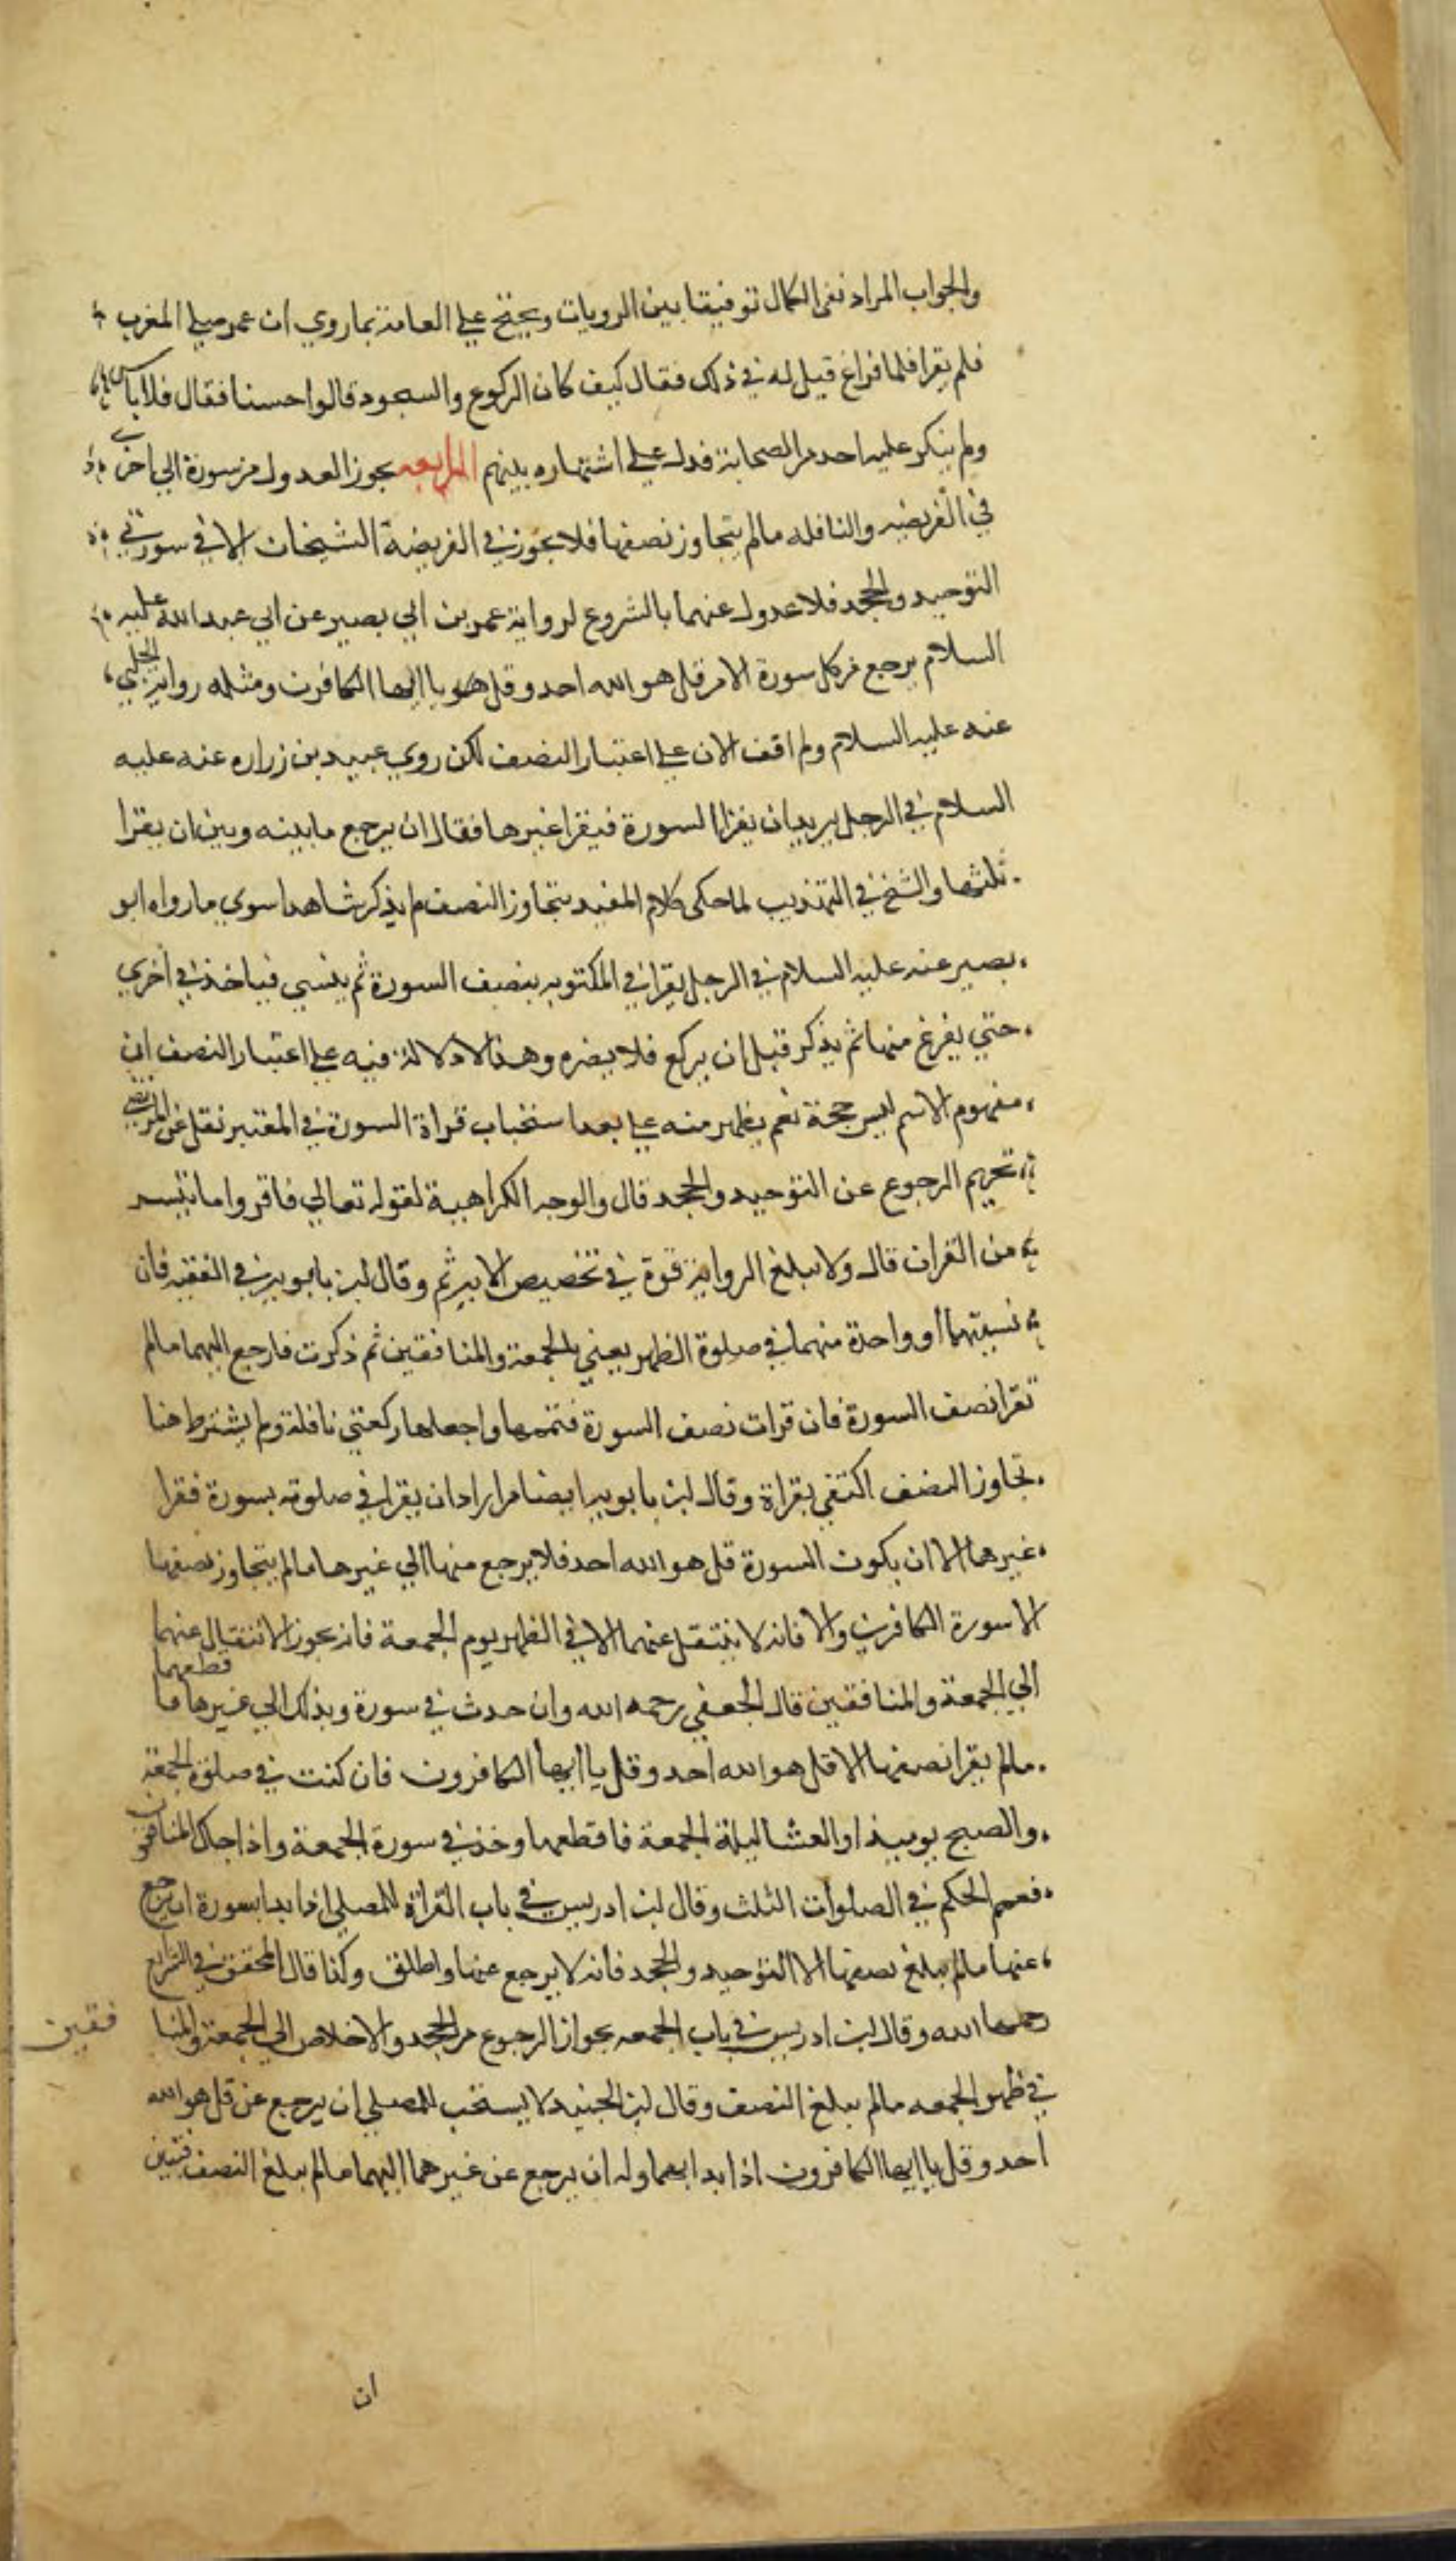 والجواب المراد نفي الكمال توفيقا بين الرويات ويحتج علي العامة بما روي ان عمر صلي المغرب
فلم يقرا فلما فراغ قيل له في ذلك فقال كيف كان الركوع والسجود قالوا حسنا فقال فلا باس
ولم ينكر عليه احد من الصحابة فدل علي اشتهاره بينهم الرابعه يجوز العدول من سورة الي اخري
في الفريضه والنافله مالم يتجاوز نصفها فلا يجوز في الفريضة الشيخان الا في سورتي
التوحيد والجحد فلا عدول عنهما بالشروع لرواية عمر بن ابي بصير عن ابي عبد الله عليه
السلام يرجع من كل سورة الا من قل هو الله احد وقل يا ايها الكافرن ومثله رواية الحلبي
عنه عليه السلام ولم اقف الان علي اعتبار النصف لكن روي عبيد بن زراره عنه عليه
السلام في الرجل يريد ان يقرا السورة فيقرا غيرها فقال ان يرجع مابينه وبين ان يقرا
ثلثها والشيخ في التهذيب لما حكى كلام المفيد يتجاوز النصف لم يذكر شاهدا سوي ما رواه ابو
بصير عنه عليه السلام في الرجل يقرا في المكتوبه بنصف السورة ثم ينسي فياخذ في اخري
حتي يفرغ منها ثم يذكر قبل ان يركع فلا يضره وهذا لا دلالة فيه علي اعتبار النصف اذن
مفهوم الاسم ليس حجة نعم يظهر منه علي بعد استحباب قراة السورة في المعتبر نقل عن المرتضي
تحريم الرجوع عن التوحيد والجحد قال والوجه الكراهية لقوله تعالي فاقروا ما تيسر
من القران قال ولا تبلغ الرواية قوة في تخصيص الايه ثم وقال ابن بابويه في الفقيه فان
نسيتهما او واحدة منهما في صلوة الظهر يعني بالجمعة والمنافقين ثم ذكرت فارجع اليهما مالم
تقرا نصف السورة فان قرات نصف السورة فتممها واجعلها ركعتي نافلة ولم يشترط هنا
تجاوز النصف اكتفي بقراة وقال ابن بابويه ايضا من اراد ان يقرا في صلوته بسورة فقرا
غيرها الا ان يكون السورة قل هو الله احد فلا يرجع منها الي غيرها مالم يتجاوز نصفها
الا سورة الكافرن والا فانه لا ينتقل عنهما الا في الظهر يوم الجمعة فانه يجوز الانتقال عنهما
الي الجمعة والمنافقين قال الجعفي رحمه الله وان حدث في سورة وبذلك الي غيرها ما قطعهما
مالم يقرا نصفها الا قل هو الله احد وقل يا ايها الكافرون فان كنت في صلوة الجمعة
والصبح يوميذ او العشا ليلة الجمعة فاقطعها وخذ في سورة الجمعة واذا جاك المنافقون
فعمم الحكم في الصلوات الثلث وقال ابن ادريس في باب القراة للمصلي اذا بدا بسورة ان يرجع
عنها مالم يبلغ نصفها الا التوحيد والجحد فانه لا يرجع عنها واطلق وكذا قال المحقق في الشرايع
رحمهما الله وقال ابن ادريس في باب الجمعه بجواز الرجوع من الجحد والاخلاص الي الجمعة والمنا فقين
في ظهر الجمعه مالم يبلغ النصف وقال ابن الجنيد لا يستحب للمصلي ان يرجع عن قل هو الله
احد وقل يا ايها الكافرون اذا بدا بهما وله ان يرجع عن غيرهما اليهما مالم يبلغ النصف
ان